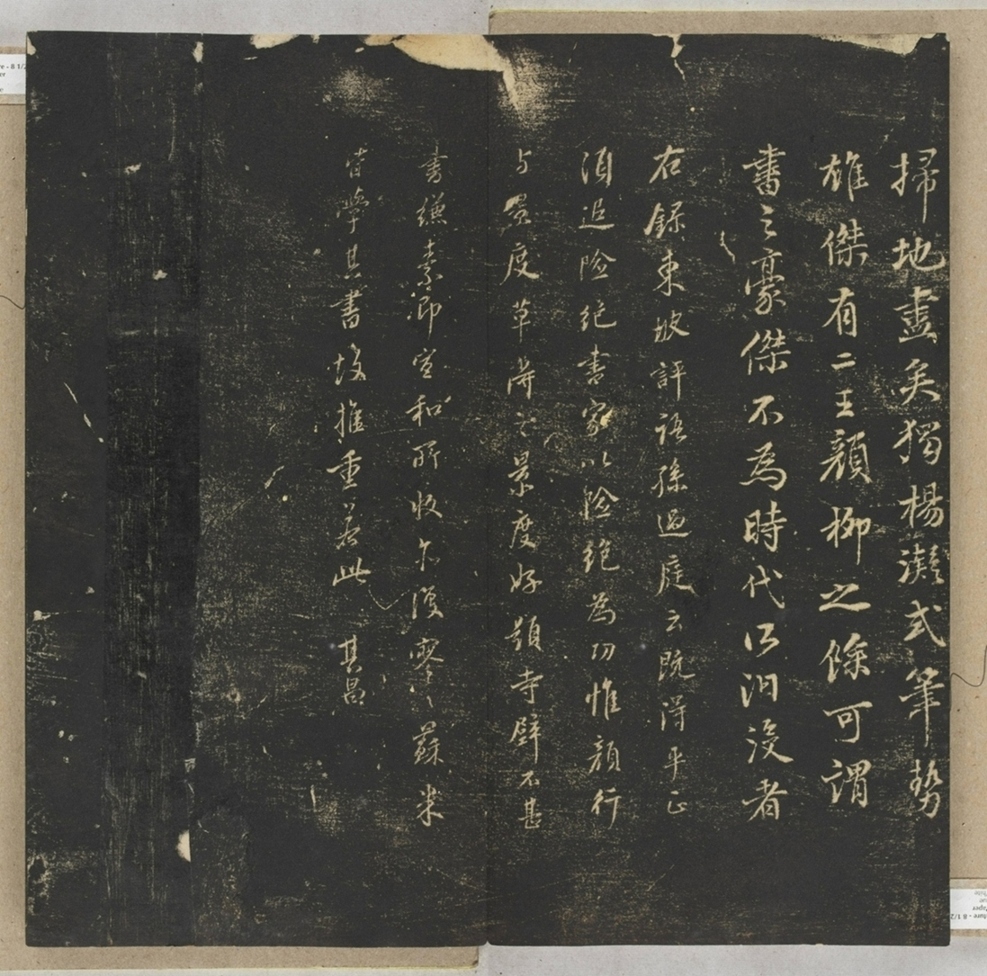 掃地盡矣獨楊凝式筆勢
雄傑有二王顏柳之餘可謂
書之豪傑不為時代所汩沒者
右錄東坡評語孫過庭云既得平正
須追險絕書家以險絕為功惟顏行
与景度草得之景度好題寺壁不甚
書縑素即宣和所收亦復零零蘇米
皆學其書故推重若此 其昌